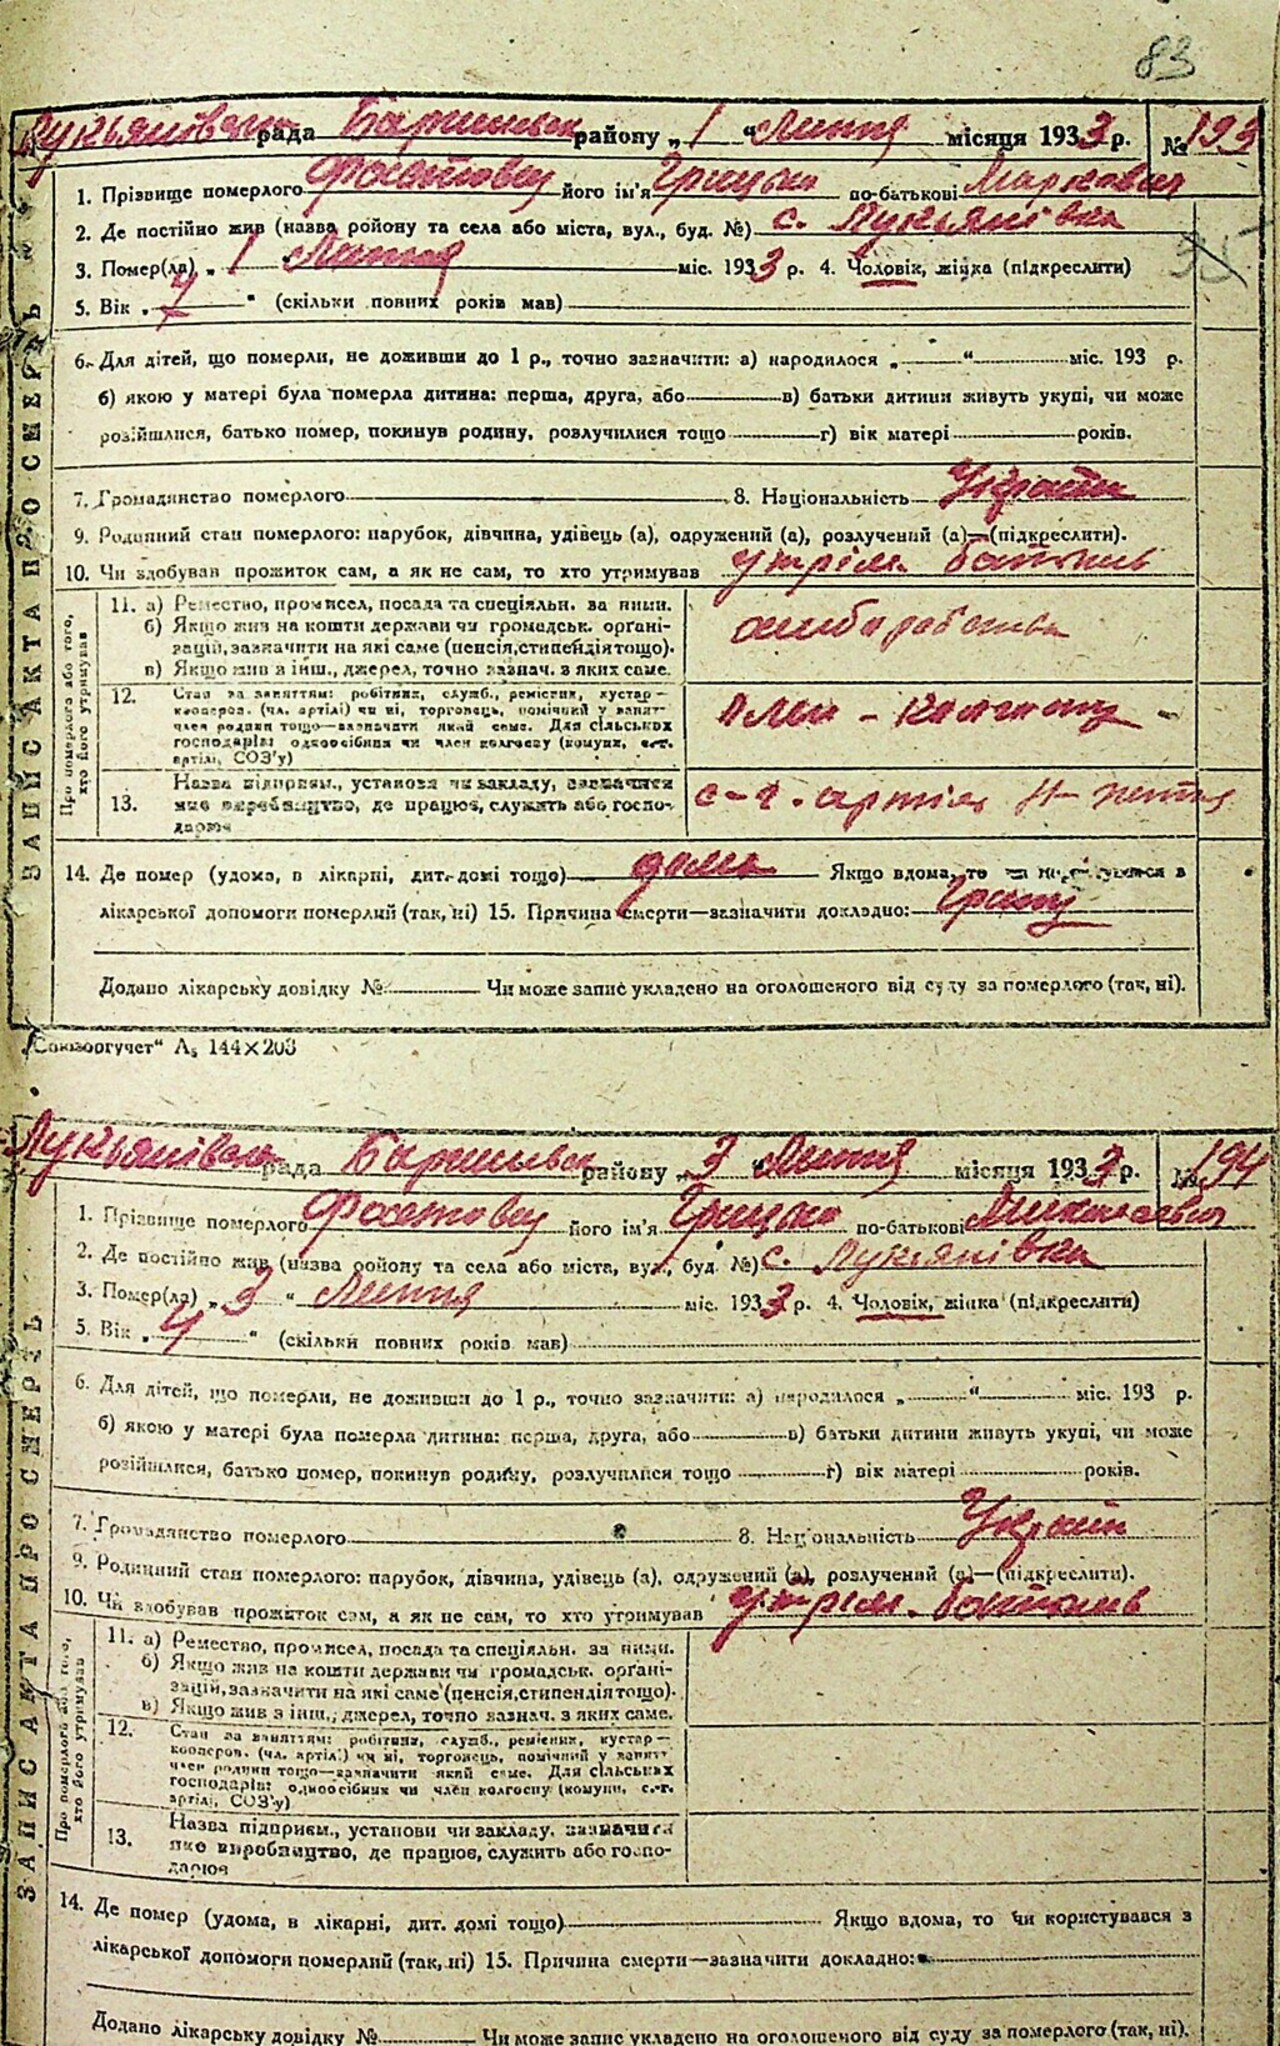 83
Лукьянівська рада Баришівськ району „ 1 " Липня місяця 1933 р. № 193
1. Прізвище померлого його ім'я Грицько по-батькові Маркович
2. Де постійно жив (назва ройону та села або міста, вул., буд. №) с. Лукьянівка
3. Помер(ла) „ 1 Липня міс. 1933 р. 4. Чоловік, жінка (підкреслити)
5. Вік „ " (скільки повних років мав)
6. Для дітей, що померли, не доживши до 1 р., точно зазначити: а) народилося „ " міс. 193 р.
б) якою у матері була померла дитина: перша, друга, або в) батьки дитини живуть укупі, чи може
розійшлися, батько помер, покинув родину, розлучилися тощо г) вік матері років.
7. Громадянство померлого 8. Національність Україн
9. Родинний стан померлого: парубок, дівчина, удівець (а), одружений (а), розлучений (а)—(підкреслити).
10. Чи здобував прожиток сам, а як не сам, то хто утримував утрим. батьків
ЗАПИС АКТА ПРО СМЕРТЬ
Про померлого або того, хто його утримував
11. а) Ремество, промисел, посада та спеціяльн. за ними.
б) Якщо жив на кошти держави чи громадськ. орґані-
зацій, зазначити на які саме (пенсія, стипендія тощо).
в) Якщо жив з інш., джерел, точно зазнач. з яких саме.
12. Стан за заняттям: робітник, служб., ремісник, кустар—
кооперов. (чл. артілі) чи ні, торговець, помічний у занят—
член родини тощо—зазначити який саме. Для сільських
господарів: одноосібник чи член колгоспу (комуни, с.-г.
артілі, СОЗ'у)
член - колгоспу
13. Назва підприєм., установи чи закладу, зазначити
яке виробництво, де працює, служить або госпо-
дарює
с-г. артіль
14. Де помер (удома, в лікарні, дит. домі тощо) дома Якщо вдома, то чи користувався з
лікарської допомоги померлий (так, ні) 15. Причина смерти—зазначити докладно:
Додано лікарську довідку № Чи може запис укладено на оголошеного від суду за померлого (так, ні).
„Союзоргучет" А₅ 144×203
Лукьянівська рада Баришівськ району „ 3 " Липня місяця 1933 р. № 194
1. Прізвище померлого його ім'я Грицько по-батькові Миколаєвич
2. Де постійно жив (назва ройону та села або міста, вул., буд. №) с. Лукянівка
3. Помер(ла) „ 3 " Липня міс. 1933 р. 4. Чоловік, жінка (підкреслити)
5. Вік „ 4 " (скільки повних років мав)
6. Для дітей, що померли, не доживши до 1 р., точно зазначити: а) народилося „ " міс. 193 р.
б) якою у матері була померла дитина: перша, друга, або в) батьки дитини живуть укупі, чи може
розійшлися, батько помер, покинув родину, розлучилися тощо г) вік матері років.
7. Громадянство померлого 8. Національність Україн
9. Родинний стан померлого: парубок, дівчина, удівець (а), одружений (а), розлучений (а)—(підкреслити).
10. Чи здобував прожиток сам, а як не сам, то хто утримував утрим. батьків
ЗАПИС АКТА ПРО СМЕРТЬ
Про померлого або того, хто його утримував
11. а) Ремество, промисел, посада та спеціяльн. за ними.
б) Якщо жив на кошти держави чи громадськ. орґані-
зацій, зазначити на які саме (пенсія, стипендія тощо).
в) Якщо жив з інш., джерел, точно зазнач. з яких саме.
12. Стан за заняттям: робітник, служб., ремісник, кустар—
кооперов. (чл. артілі) чи ні, торговець, помічний у занят—
член родини тощо—зазначити який саме. Для сільських
господарів: одноосібник чи член колгоспу (комуни, с.-г.
артілі, СОЗ'у)
13. Назва підприєм., установи чи закладу, зазначити
яке виробництво, де працює, служить або госпо-
дарює
14. Де помер (удома, в лікарні, дит. домі тощо) Якщо вдома, то чи користувався з
лікарської допомоги померлий (так, ні) 15. Причина смерти—зазначити докладно:
Додано лікарську довідку № Чи може запис укладено на оголошеного від суду за померлого (так, ні).